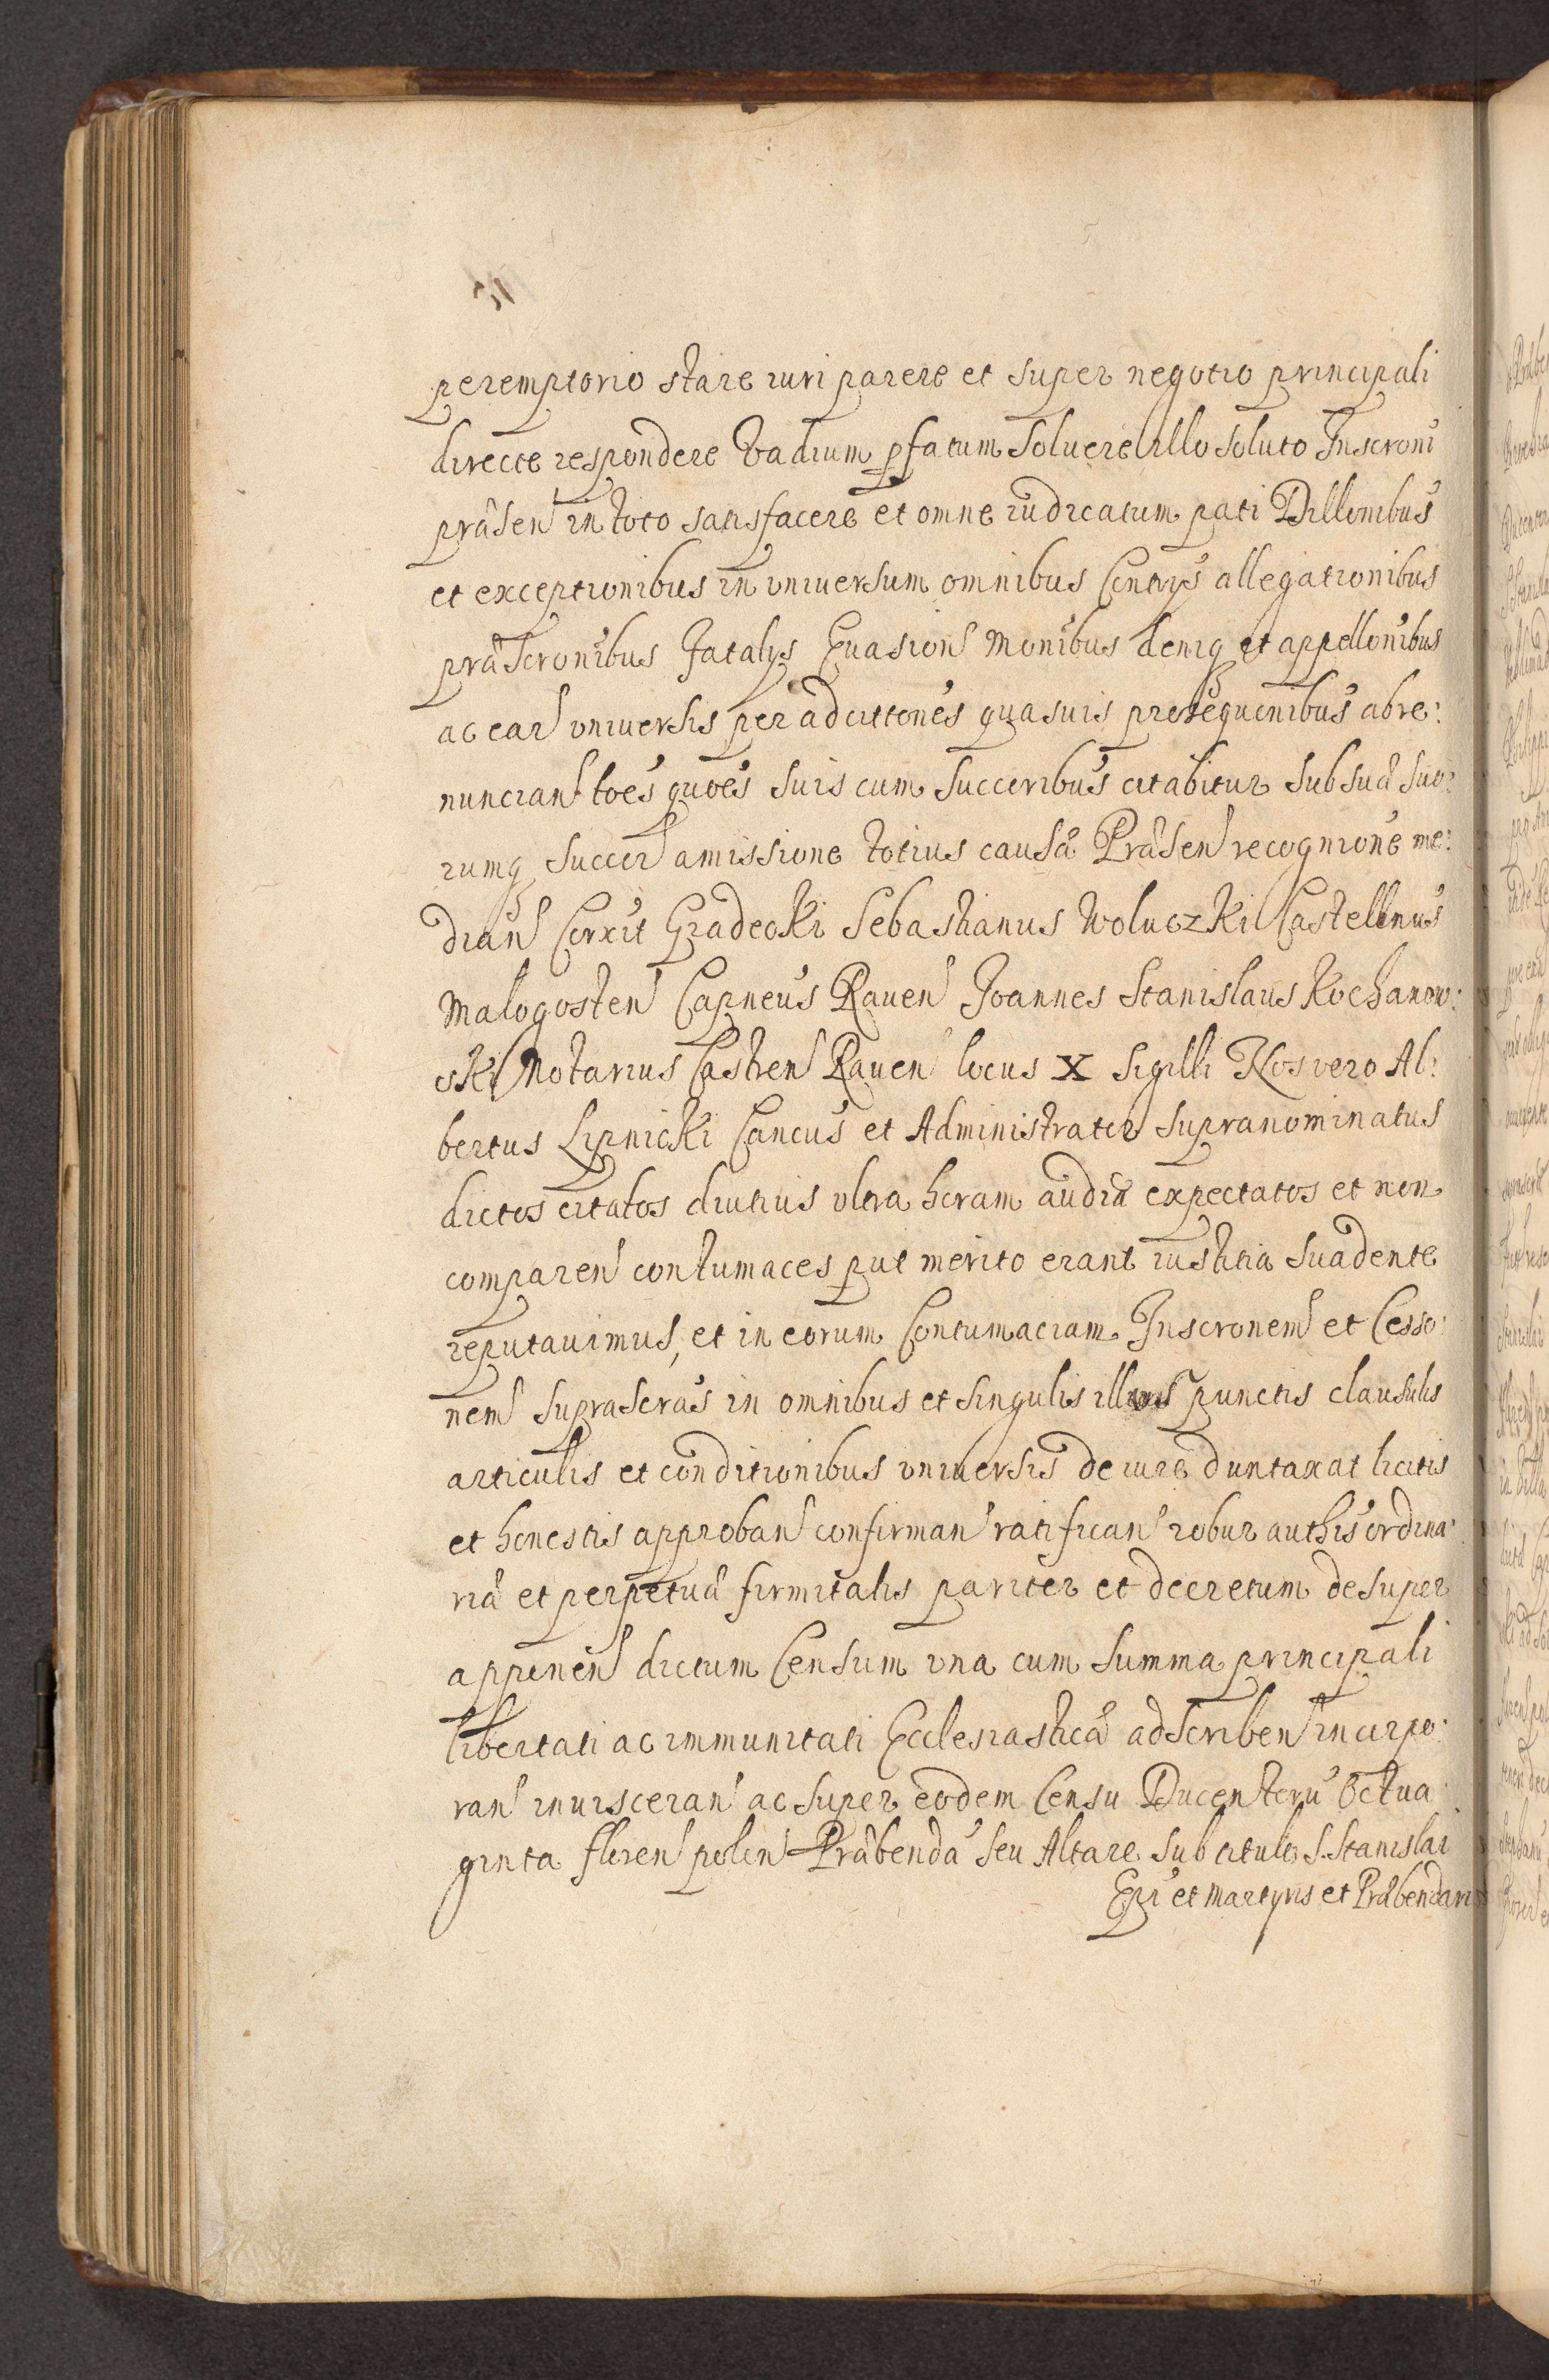 peremptorio stare iuri parere et super negotio principali
directe respondere Vadium pfatum Soluere illo soluto Inscroni
prâsen in toto satisfacere et omne iudicatum pati Dillonibus
et exceptionibus in vniuersum omnibus Contrys allegationibus
prâscronibus Fatalys Euasion Monibus deniq et appellonibus
ac ear vniuersis per adcittones quasuis prosequenibus abre:
nuncian toes quoes suis cum Succoribus citabitur sub sua suo:
rumq succor amissione totius causâ Prâsen recognione me:
dian Corxit Gradecki Sebastianus Woluczki Castellnus
Malogosten Capneus Rauen Joannes Stanislaus Kochanow:
ski Notarius Castren Rauen locus X Sigilli Nos vero Al:
bertus Lipnicki Cancus et Administrator supranominatus
dictos citatos diutius vltra horam audiâ expectatos et non
comparen contumaces put merito erant iustitia suadente
reputauimus, et in eorum Contumaciam Inscronem et Cesso:
nem suprascras in omnibus et singulis illius punctis clausulis
articulis et conditionibus vniuersis de iure duntaxat licitis
et honestis approban confirman ratifican robur authis ordina:
riâ et perpetuâ firmitatis pariter et decretum desuper
apponen dictum Censum vna cum Summa principali
libertati ac immunitati Ecclesiasticâ adscriben incorpo:
ran inuisceran ac super eodem Censu Ducentoru Octua:
ginta floren polon Prâbendâ seu Altare sub titulo S. Stanislai
Epi et Martyris et Prâbendario